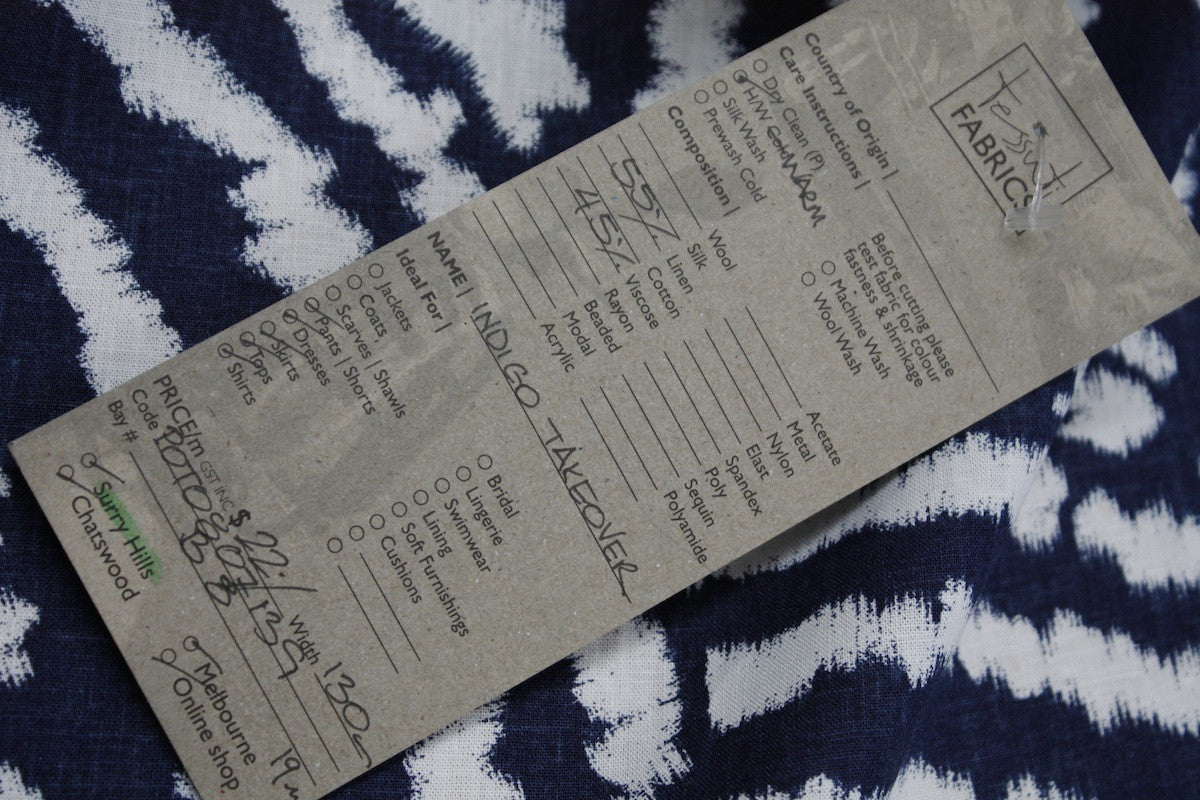 tessuti
FABRICS
Country of Origin |
Care Instructions |
Dry Clean (P)
H/W Cold WARM
Silk Wash
Prewash Cold
Before cutting please
test fabric for colour
fastness & shrinkage
Machine Wash
Wool Wash
Composition |
Wool
Silk
55% Linen
Cotton
45% Viscose
Rayon
Beaded
Modal
Acrylic
Acetate
Metal
Nylon
Elast
Spandex
Poly
Sequin
Polyamide
NAME | INDIGO TAKEOVER
Ideal For |
Jackets
Coats
Scarves | Shawls
Pants | Shorts
Dresses
Skirts
Tops
Shirts
Bridal
Lingerie
Swimwear
Lining
Soft Furnishings
Cushions
PRICE/m GST INC $ 22.- Width 130c
Code
Bay #
Surry Hills
Chatswood
Melbourne
Online shop
19m